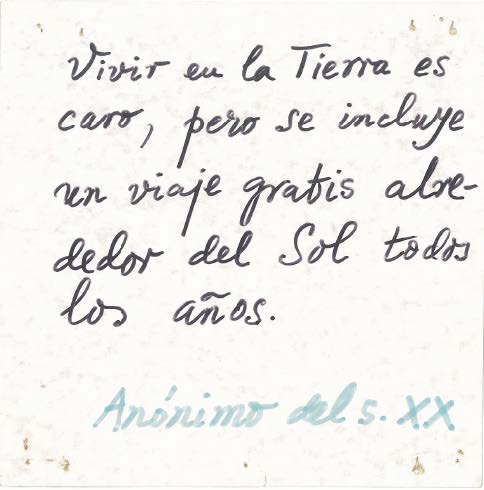 Vivir en la Tierra es
caro, pero se incluye
un viaje gratis alre-
dedor del Sol todos
los años.
Anónimo del s. XX